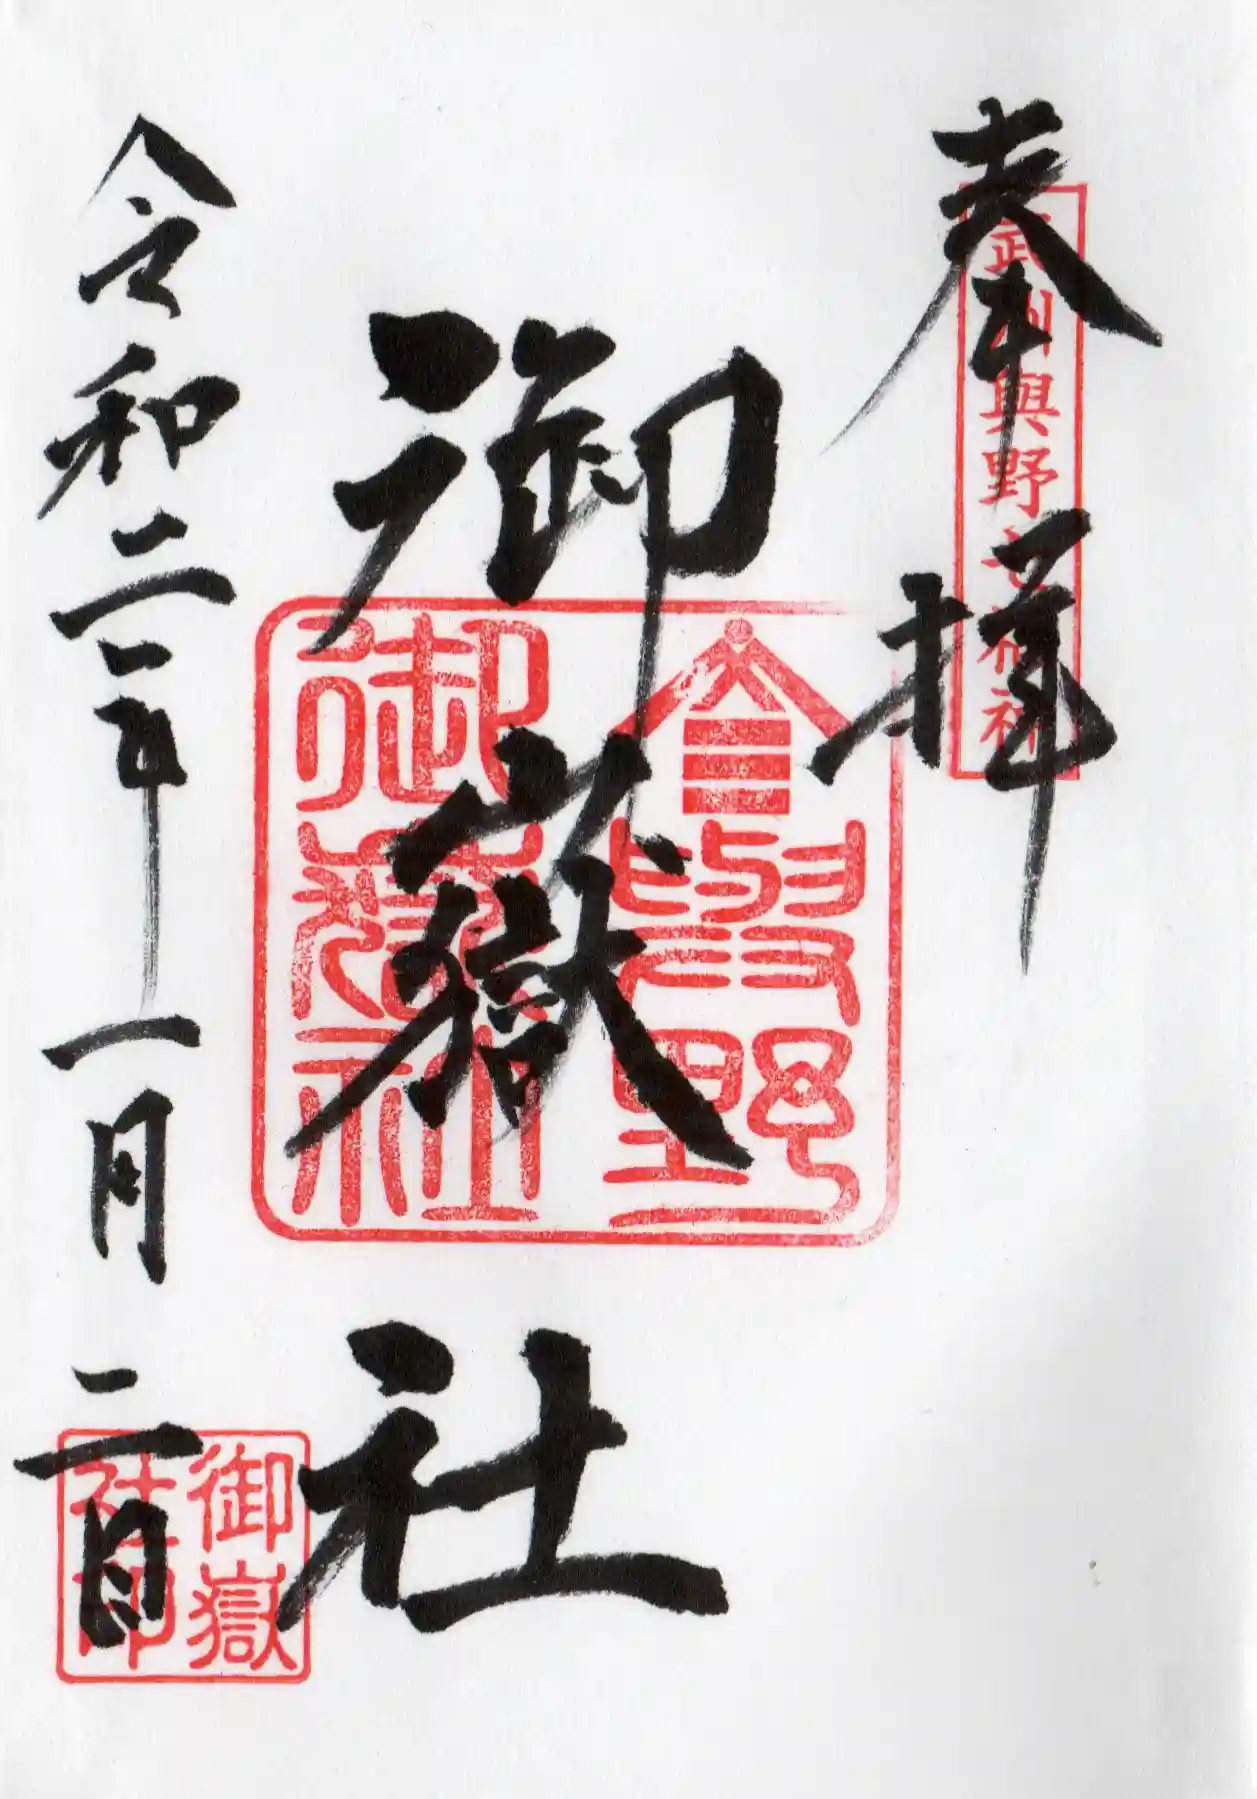 奉拝
武州與野七福神
御嶽社
與野
御嶽社
令和二年一月二日
御嶽
社印